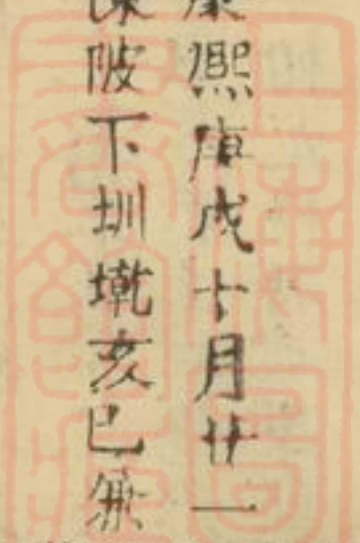 康熙庚戌十月廿一
陂下圳墘亥巳兼